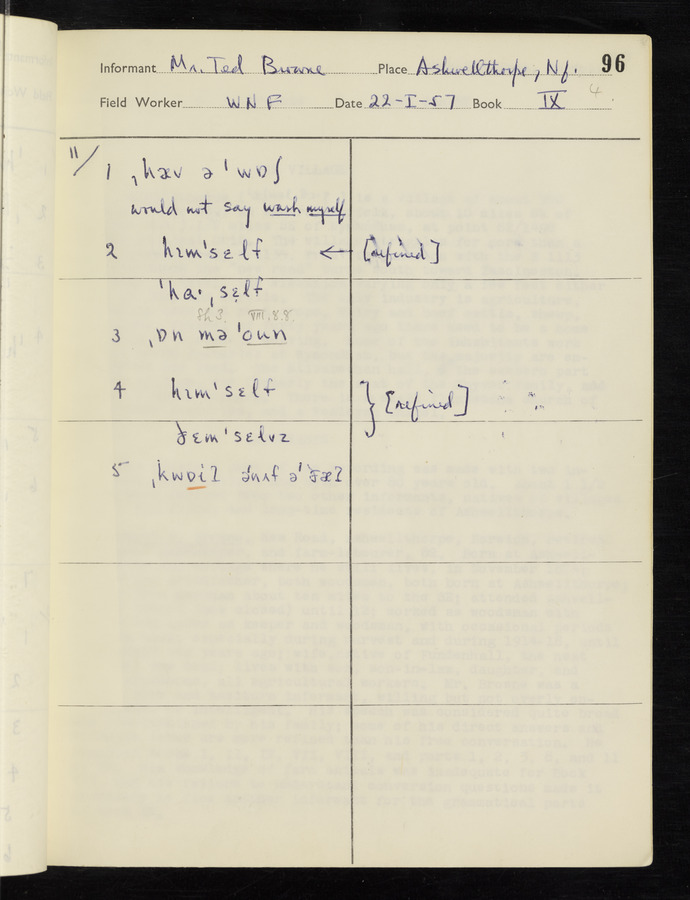 Informant Mr. Ted Browne Place Ashwellthorpe, Nf. 96
Field Worker WNF Date 22-I-57 Book IX 4
11/ 1 ˌhæv ə ˈwɒʃ
would not say wash myself
2 hɪmˈsɛlf ← [refined]
ˈhəˑˌsɛlf
3 ˌɒn məˈoun
4 hɪmˈsɛlf
} [refined]
ðɛmˈsɛlvz
5